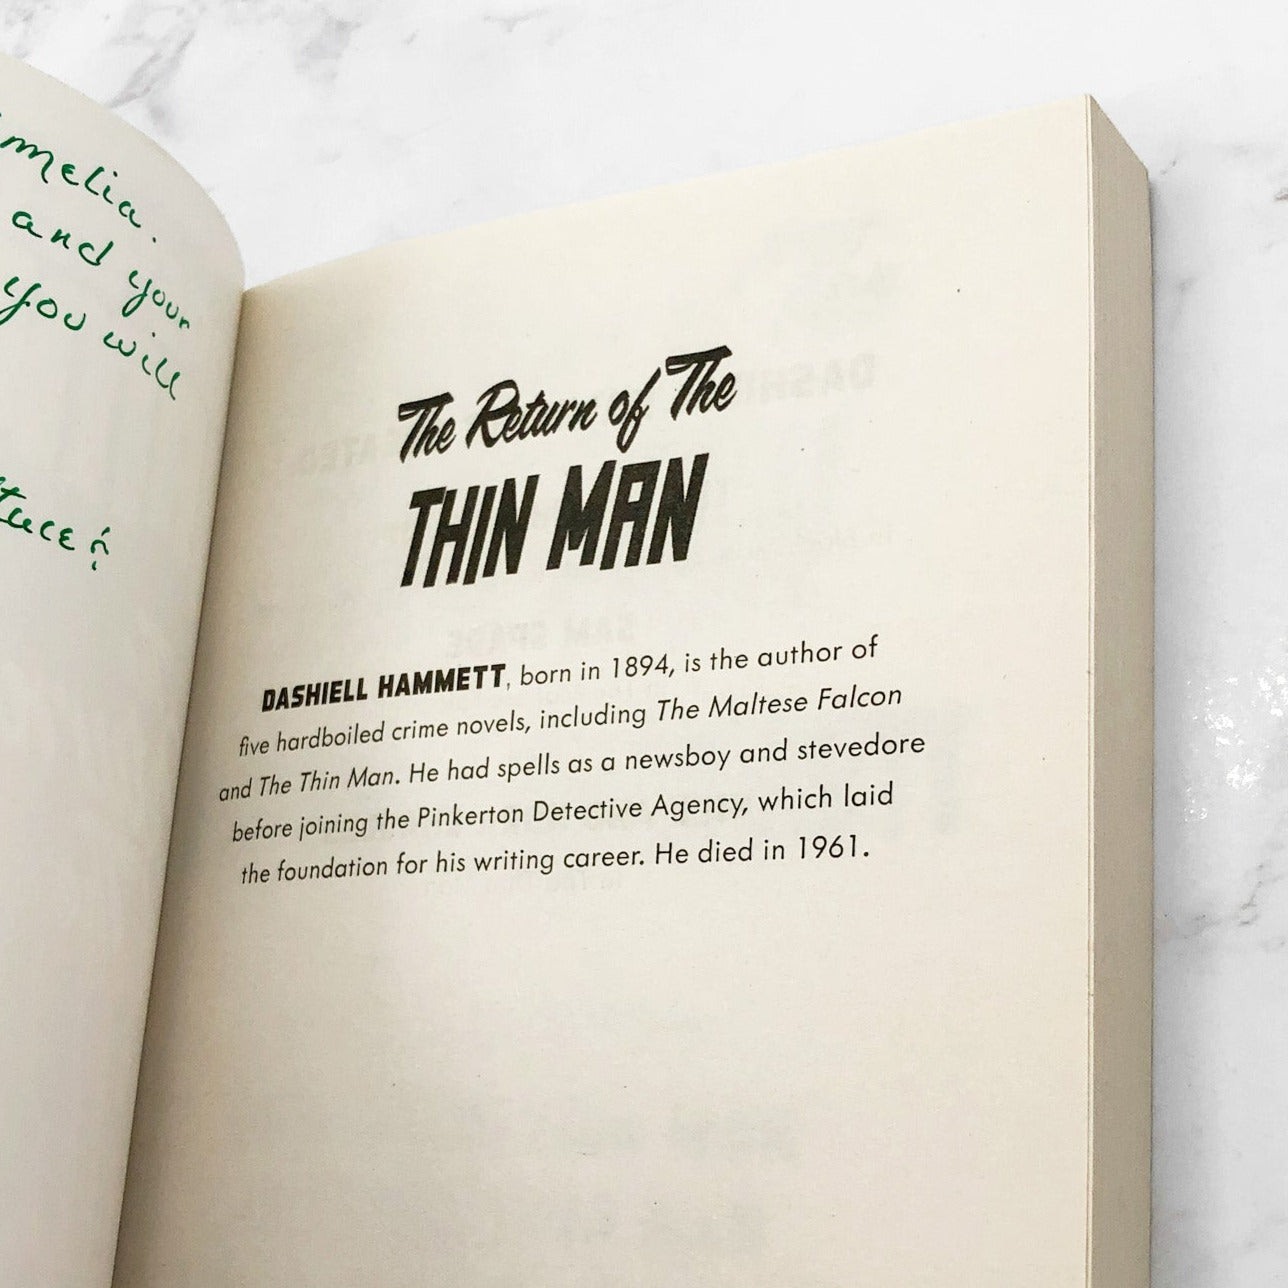 melia.
and your
you will
The Return of The
THIN MAN
DASHIELL HAMMETT, born in 1894, is the author of
five hardboiled crime novels, including The Maltese Falcon
and The Thin Man. He had spells as a newsboy and stevedore
before joining the Pinkerton Detective Agency, which laid
the foundation for his writing career. He died in 1961.